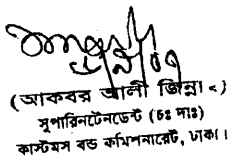 (আকবর আলী জিন্না)
সুপারিনটেনডেন্ট (চঃ দাঃ)
কাস্টমস বন্ড কমিশনারেট, ঢাকা।